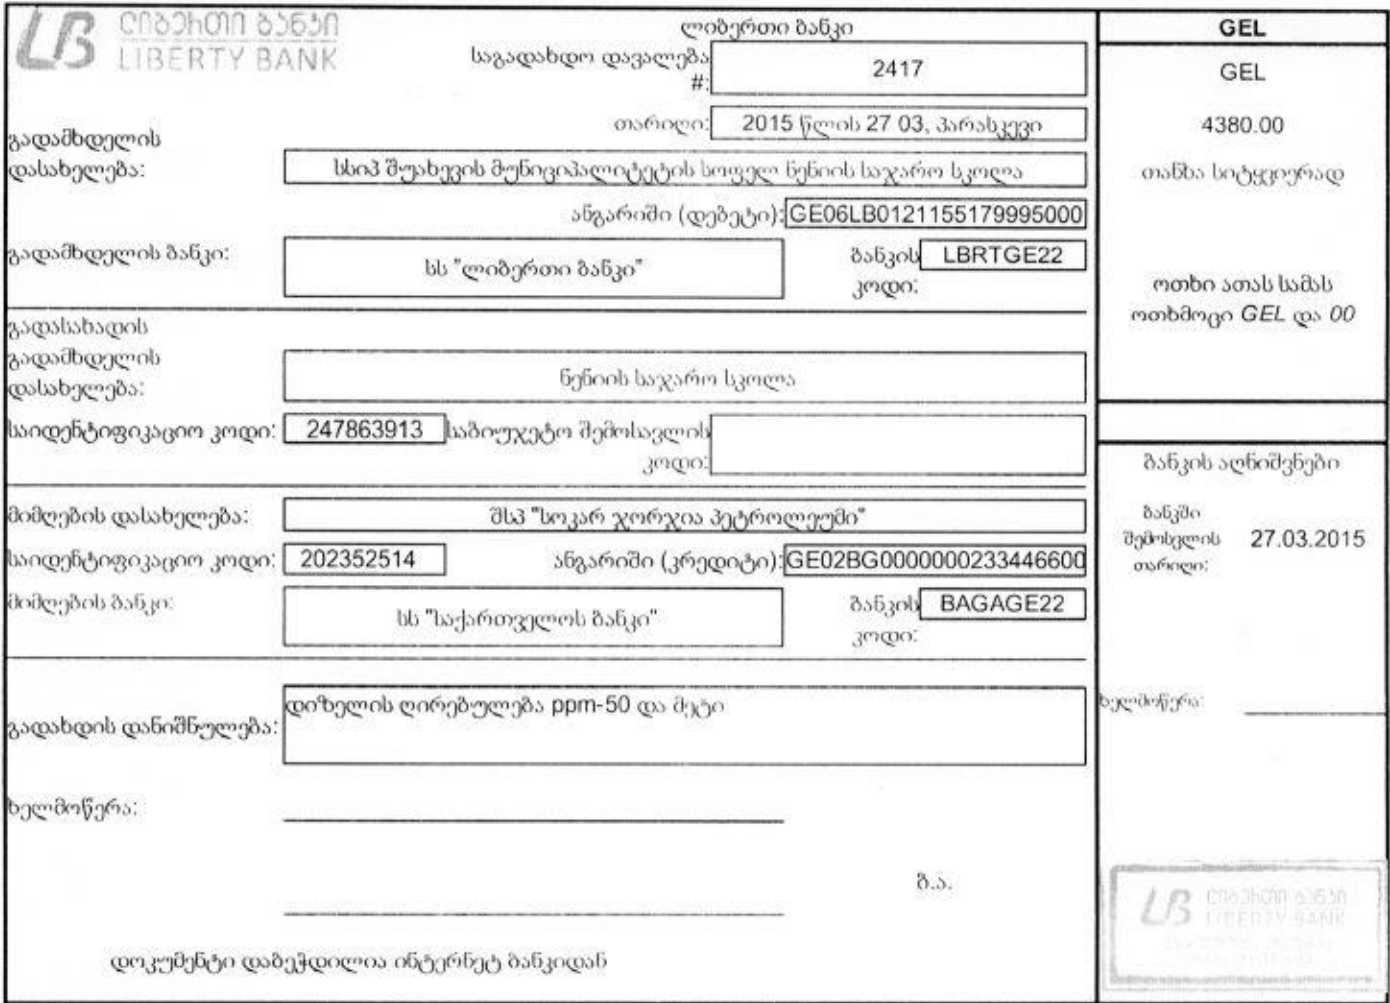 ლიბერთი ბანკი
LIBERTY BANK
ლიბერთი ბანკი
საგადახდო დავალება #: 2417
თარიღი: 2015 წლის 27 03, პარასკევი
გადამხდელის დასახელება: სსიპ შუახევის მუნიციპალიტეტის სოფელ ნენიის საჯარო სკოლა
ანგარიში (დებეტი): GE06LB0121155179995000
გადამხდელის ბანკი: სს "ლიბერთი ბანკი" ბანკის კოდი: LBRTGE22
გადასახადის გადამხდელის დასახელება: ნენიის საჯარო სკოლა
საიდენტიფიკაციო კოდი: 247863913 საბიუჯეტო შემოსავლის კოდი:
მიმღების დასახელება: შსპ "სოკარ ჯორჯია პეტროლეუმი"
საიდენტიფიკაციო კოდი: 202352514 ანგარიში (კრედიტი): GE02BG0000000233446600
მიმღების ბანკი: სს "საქართველოს ბანკი" ბანკის კოდი: BAGAGE22
გადახდის დანიშნულება: დიზელის ღირებულება ppm-50 და მეტი
ხელმოწერა:
ბ.ა.
დოკუმენტი დაბეჭდილია ინტერნეტ ბანკიდან
GEL
GEL
4380.00
თანხა სიტყვიერად
ოთხი ათას სამას
ოთხმოცი GEL და 00
ბანკის აღნიშვნები
ბანკში შემოსვლის თარიღი: 27.03.2015
ხელმოწერა:
ლიბერთი ბანკი
LIBERTY BANK